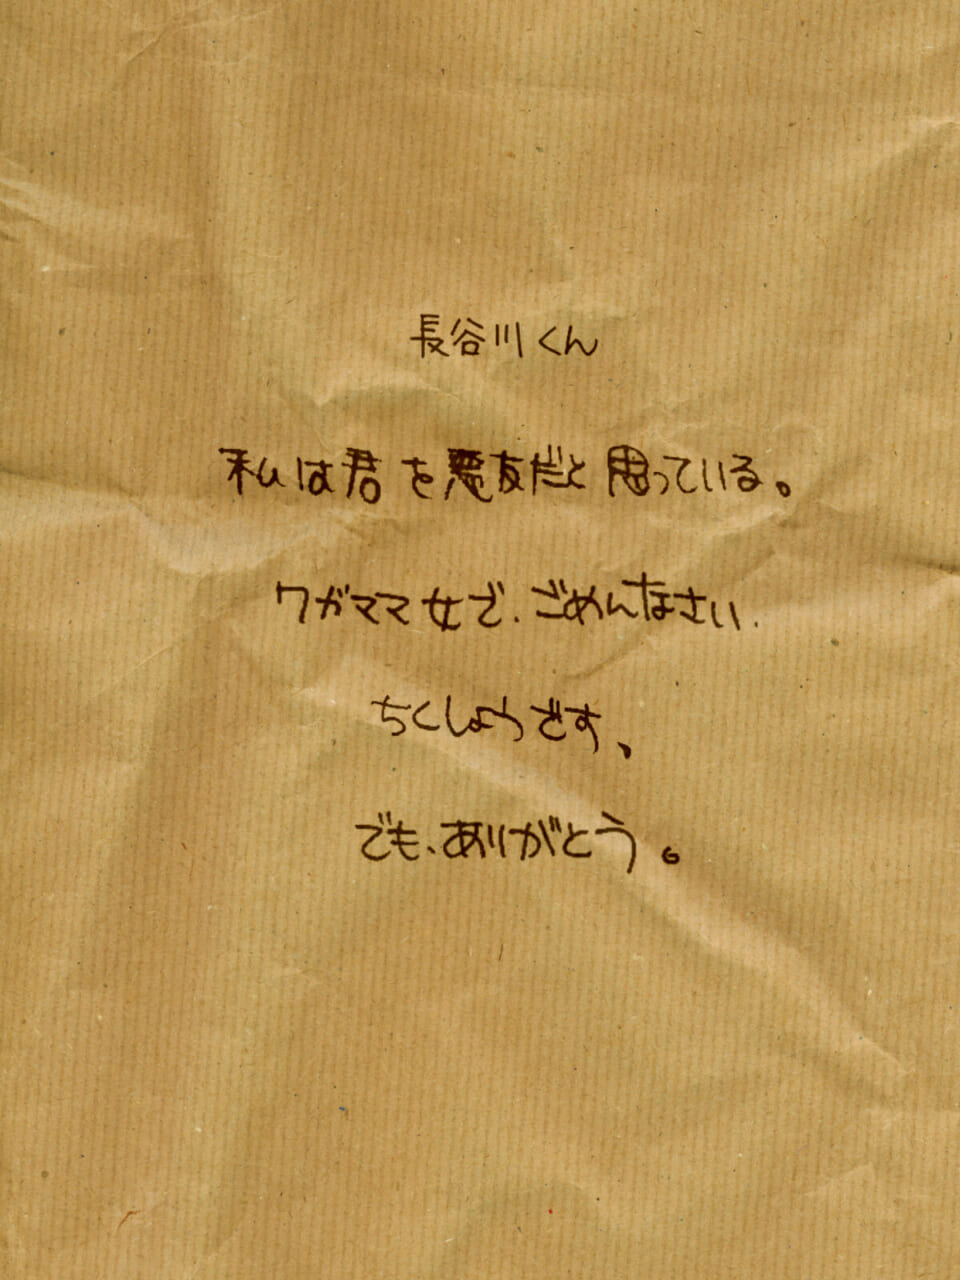 長谷川くん
私は君を悪友だと思っている。
ワガママ女で、ごめんなさい。
ちくしょうです、
でも、ありがとう。